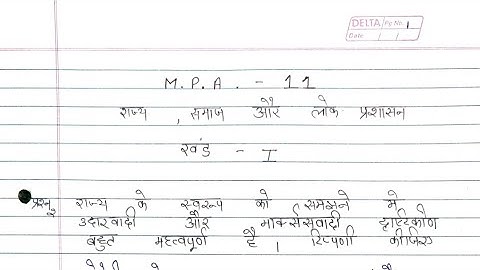 DELTA Pg No. 1
Date / /
M.P.A. - 11
राज्य, समाज और लोक प्रशासन
खंड - I
प्रश्न 2 राज्य के स्वरूप को समझने मे
उदारवादी और मार्क्सवादी दृष्टिकोण
बहुत महत्वपूर्ण है। टिप्पणी कीजिए